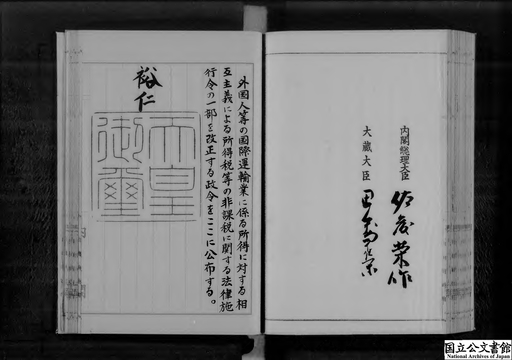 外国人等の国際運輸業に係る所得に対する相
互主義による所得税等の非課税に関する法律施
行令の一部を改正する政令をここに公布する。
裕仁
天皇
御璽
内閣総理大臣
佐藤榮作
大蔵大臣
国立公文書館
National Archives of Japan